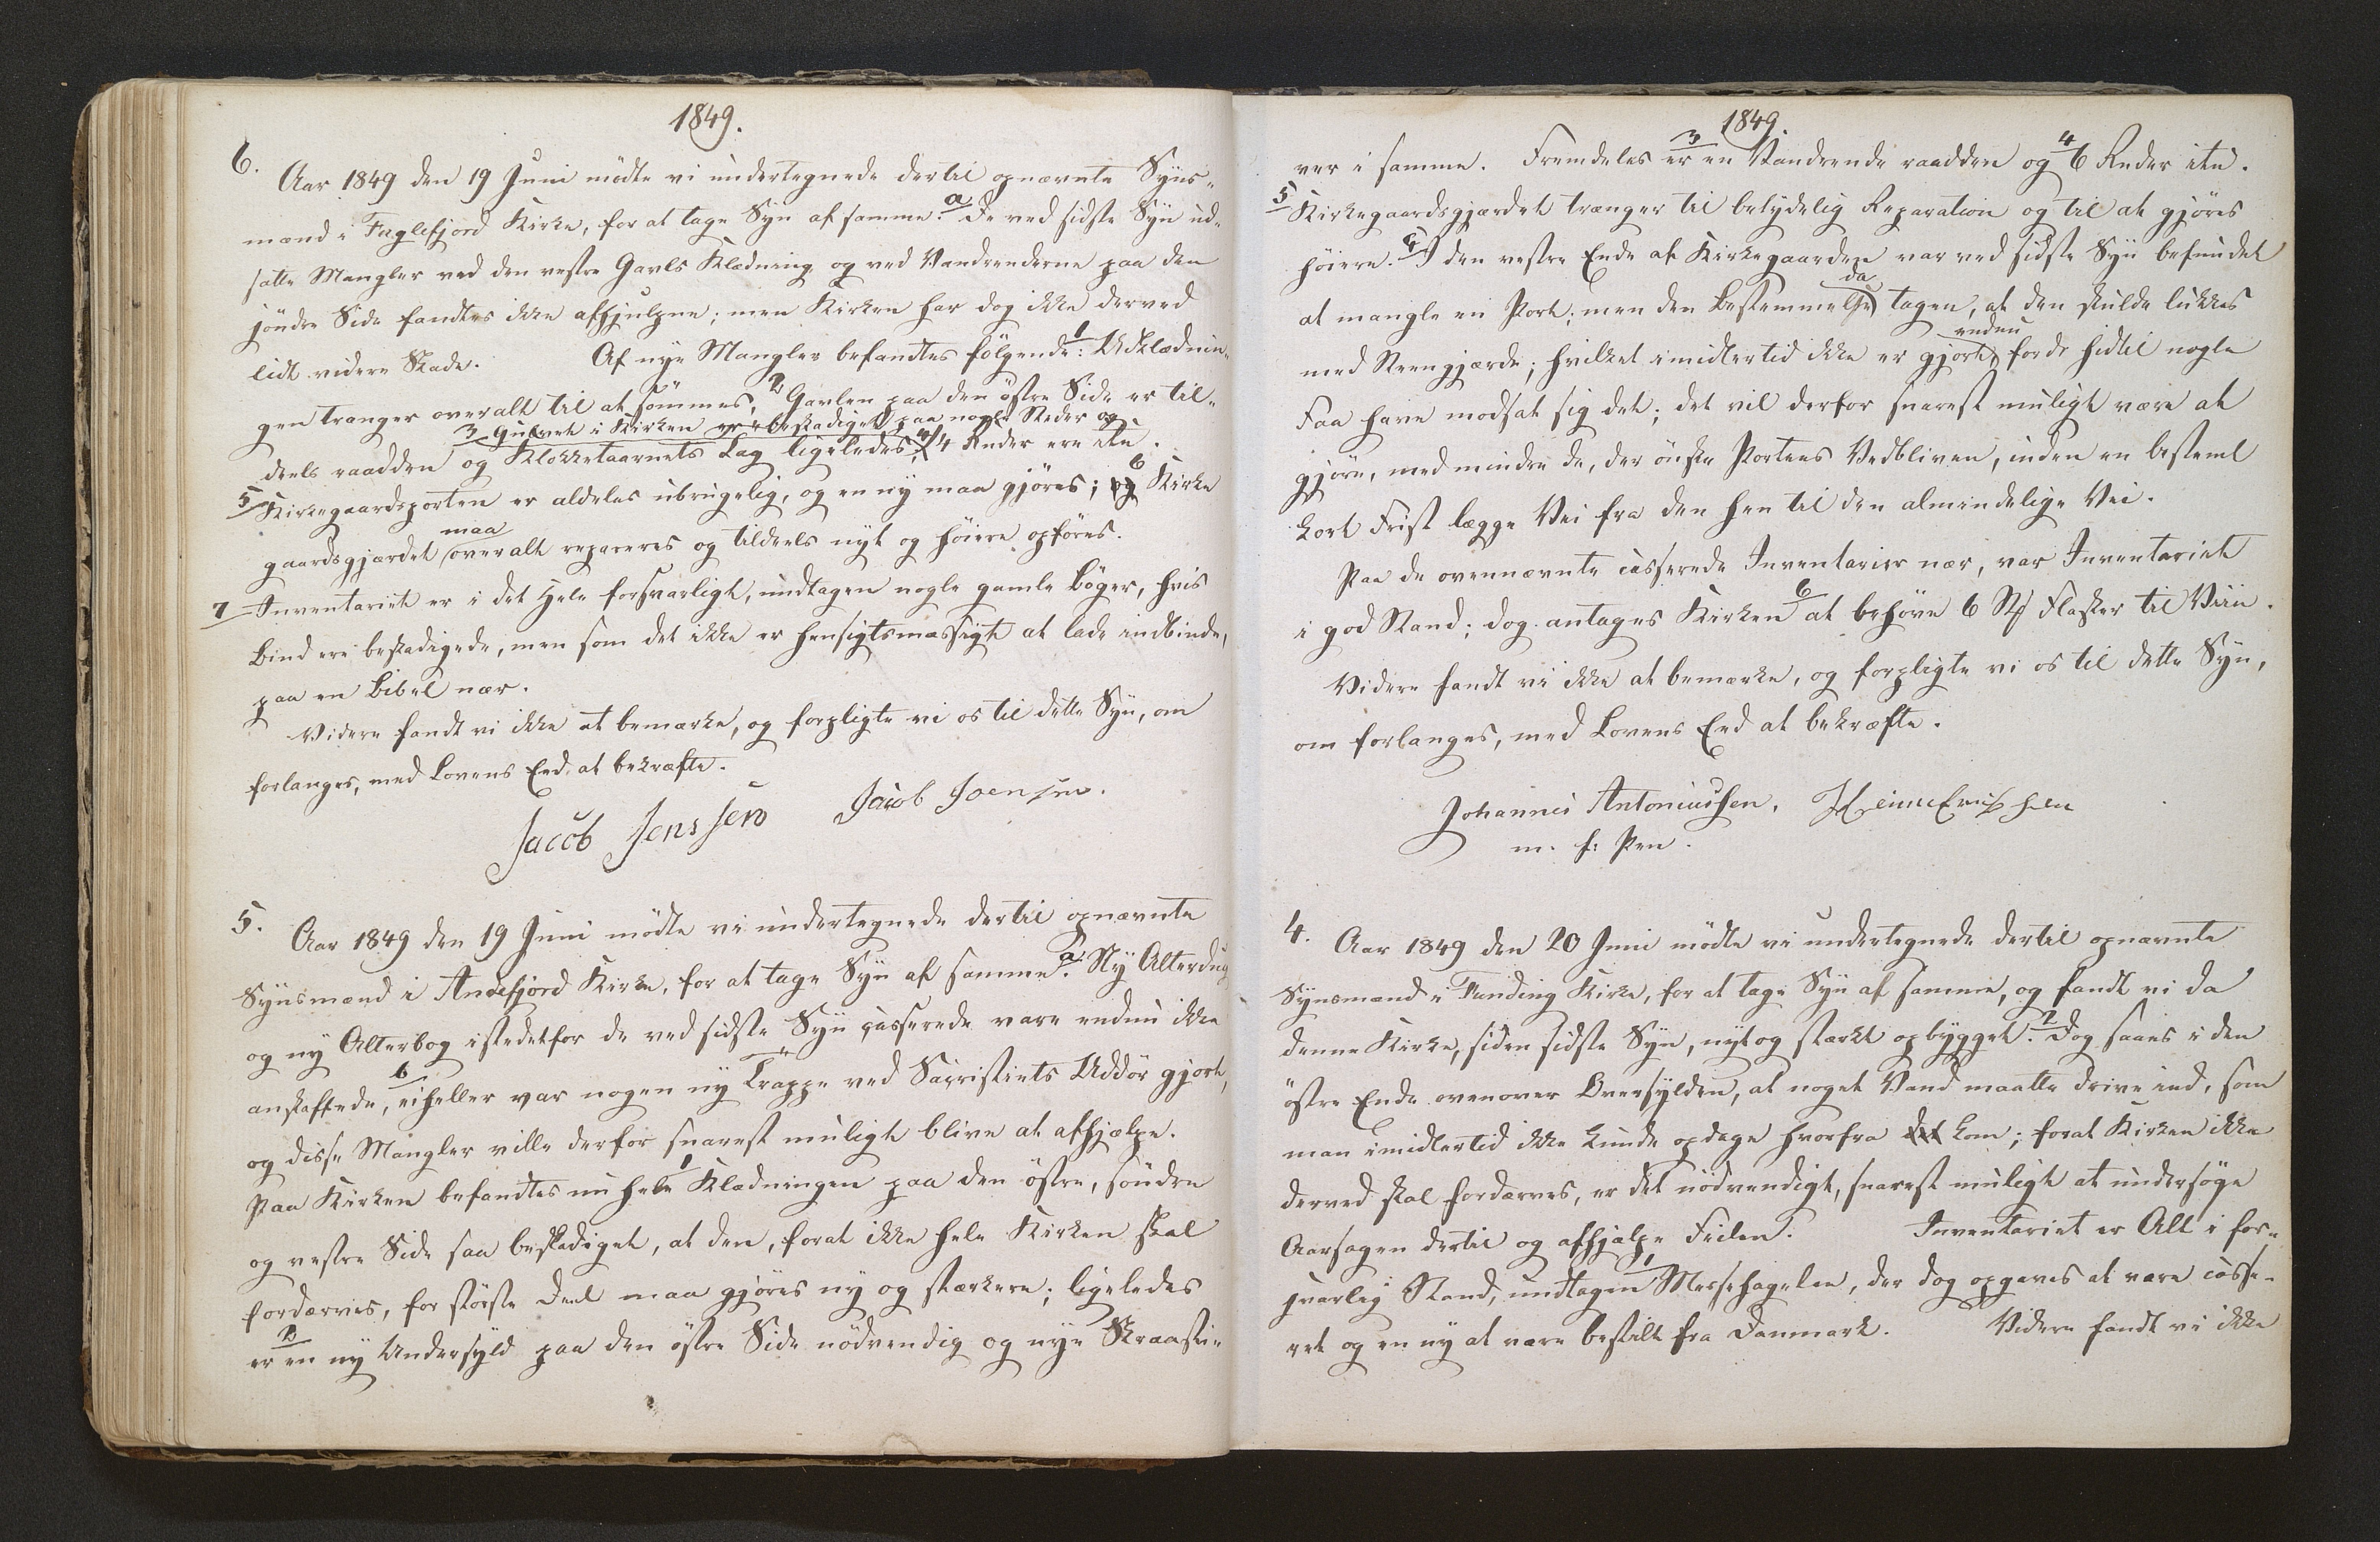 1849.
6. Aar 1849 den 19 Juni mödte vi undertegnede dertil opnævnte Syns-
mænd i Fuglefjord Kirke, for at tage Syn af samme. a De ved sidste Syn ud-
satte Mangler ved den vestre Gavls Klædning og ved Vandrenderne paa den
söndre Side fandtes ikke afhjulpne; men Kirken har dog ikke derved
lidt videre Skade. Af nye Mangler befandtes fölgende: 1 Udklædnin-
gen trænger overalt til at sömmes, 2 Gavlen paa den östre Side er til-
3 Gulvet i Kirken er beskadiget paa nogle Steder og
deels raadden og Klokketaarnets Lag ligeledes, 4 4 Ruder ere itu.
5 Kirkegaardsporten er aldeles ubrugelig, og en ny maa gjöres; og 6 Kirke
maa
gaardsgjærdet overalt repareres og tildeels nyt og höiere opföres.
7 Inventariet er i det Hele forsvarligt, undtagen nogle gamle Böger, hvis
Bind ere beskadigede, men som det ikke er hensigtsmæssigt at lade indbinde,
paa en Bibel nær.
Videre fandt vi ikke at bemærke, og forpligte vi os til dette Syn, om
forlanges, med Lovens Eed at bekræfte.
Jacob Jenssen Jacob Joensen.
5. Aar 1849 den 19 Juni mödte vi undertegnede dertil opnævnte
Synsmænd i Andefjord Kirke, for at tage Syn af samme. a Ny Alterdug
og ny Alterbog istedetfor de ved sidste Syn casserede vare endnu ikke
b
anskaffede, eiheller var nogen ny Trappe ved Sacristiets Uddör gjort,
og disse Mangler ville derfor snarest muligt blive at afhjælpe.
Paa Kirken befandtes nu hele 1 Klædningen paa den östre, söndre
og vestre Side saa beskadiget, at den, forat ikke hele Kirken skal
fordærves, for störste Deel maa gjöres ny og stærkere; ligeledes
2
er en ny Undersyld paa den östre Side nödvendig og nye Skraasti-
1849.
ver i samme. Fremdeles 3 er en Vandrende raadden og 4 6 Ruder itu.
5 Kirkegaardsgjærdet trænger til betydelig Reparation og til at gjöres
höiere. c I den vestre Ende af Kirkegaarden var ved sidste Syn befundet
da
at mangle en Port; men den Bestemmelse tagen, at den skulde lukkes
endnu
med Steengjærde; hvilket imidlertid ikke er gjort, fordi hidtil nogle
Faa have modsat sig det; det vil derfor snarest muligt være at
gjöre, med mindre de, der önske Portens Vedbliven, inden en bestemt
kort Frist lægge Vei fra den hen til den almindelige Vei.
Paa de ovennævnte casserede Inventarier nær, var Inventariet
i god Stand; dog antages Kirken 6 at behöve 6 St Flasker til Viin.
Videre fandt vi ikke at bemærke, og forpligte vi os til dette Syn,
om forlanges, med Lovens Eed at bekræfte.
Johannes Antoniussen.
m. f. Pen.
4. Aar 1849 den 20 Juni mödte vi undertegnede dertil opnævnte
Synsmænd i Funding Kirke, for at tage Syn af samme, og fandt vi da
denne Kirke, siden sidste Syn, nyt og stærkt opbygget. 2 Dog saaes i den
östre Ende ovenover Oversylden, at noget Vand maatte drive ind, som
man imidlertid ikke kunde opdage hvorfra det kom; forat Kirken ikke
derved skal fordærves, er det nödvendigt, snarest muligt at undersöge
Aarsagen dertil og afhjælpe Feilen. Inventariet er Alt i for-
svarlig Stand, undtagen 1 Messehagelen, der dog opgaves at være casse-
ret og en ny at være bestilt fra Danmark. Videre fandt vi ikke